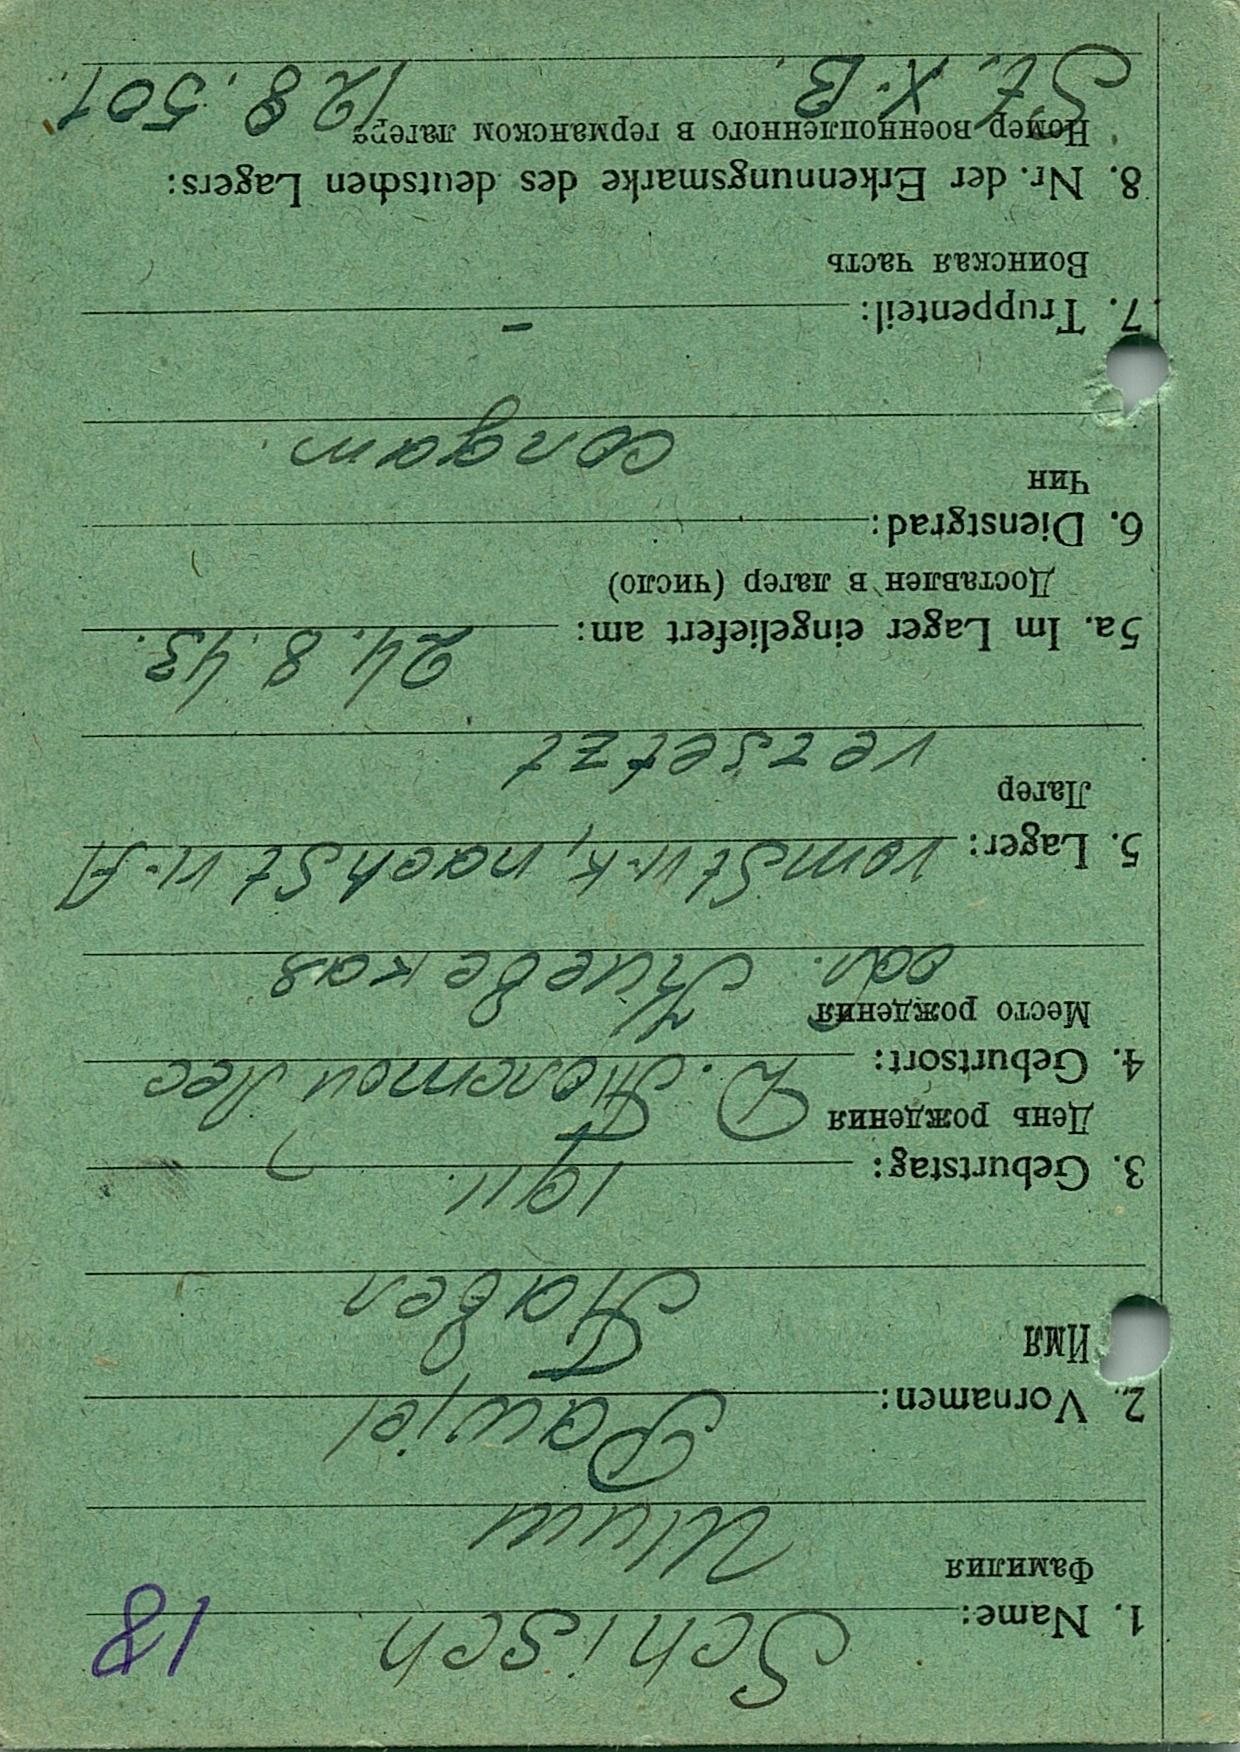 18
1. Name: Schisch
Фамилия
Шиш
2. Vornamen: Pawjel
Имя
Павел
3. Geburtstag: 1911.
День рождения
4. Geburtsort: Д. Толстой Лес
Место рождения
обл. Киевская
5. Lager: vom St VI-K, nach St VI-A
Лагер
versetzt
5a. Im Lager eingeliefert am: 24. 8. 43.
Доставлен в лагер (число)
6. Dienstgrad:
Чин
солдат.
7. Truppenteil: –
Воинская часть
8. Nr. der Erkennungsmarke des deutschen Lagers:
Номер военнопленного в германском лагере
St. X. B. 128.501.